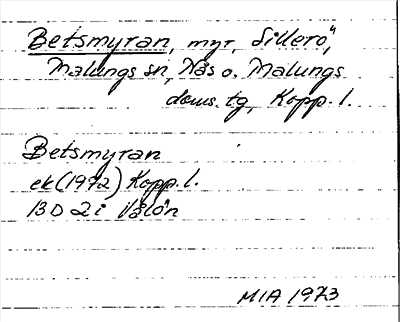 Betsmyran, myr, Sillerö,
Malungs sn, Nås o. Malungs
doms. tg, Kopp. l.
Betsmyran
ek (1972) Kopp. l.
13 D 2 i Vålön
MIA 1973